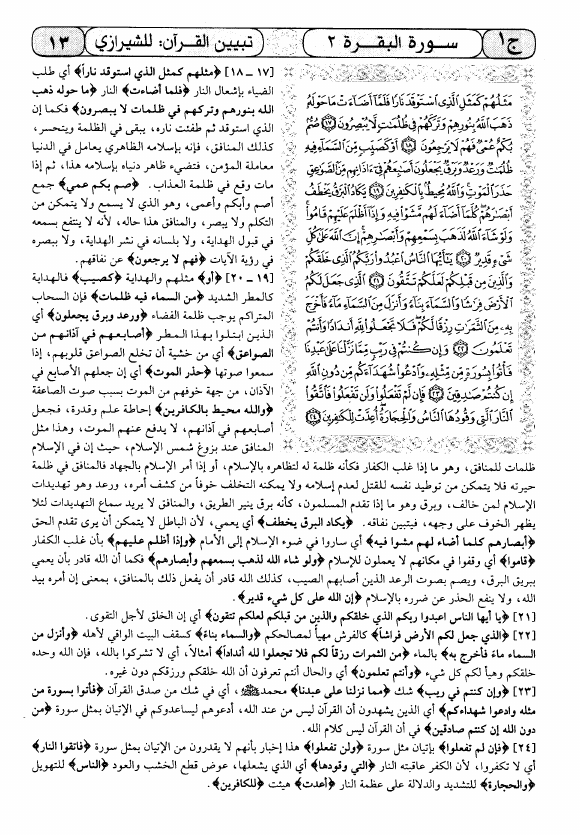 ج١
سورة البقرة ٢
تبيين القرآن: للشيرازي
١٣
مَثَلُهُمْ كَمَثَلِ الَّذِي اسْتَوْقَدَ نَارًا فَلَمَّا أَضَاءَتْ مَا حَوْلَهُ
ذَهَبَ اللَّهُ بِنُورِهِمْ وَتَرَكَهُمْ فِي ظُلُمَاتٍ لَّا يُبْصِرُونَ ١٧ صُمٌّ
بُكْمٌ عُمْيٌ فَهُمْ لَا يَرْجِعُونَ ١٨ أَوْ كَصَيِّبٍ مِّنَ السَّمَاءِ فِيهِ
ظُلُمَاتٌ وَرَعْدٌ وَبَرْقٌ يَجْعَلُونَ أَصَابِعَهُمْ فِي آذَانِهِم مِّنَ الصَّوَاعِقِ
حَذَرَ الْمَوْتِ وَاللَّهُ مُحِيطٌ بِالْكَافِرِينَ ١٩ يَكَادُ الْبَرْقُ يَخْطَفُ
أَبْصَارَهُمْ كُلَّمَا أَضَاءَ لَهُم مَّشَوْا فِيهِ وَإِذَا أَظْلَمَ عَلَيْهِمْ قَامُوا
وَلَوْ شَاءَ اللَّهُ لَذَهَبَ بِسَمْعِهِمْ وَأَبْصَارِهِمْ إِنَّ اللَّهَ عَلَى كُلِّ
شَيْءٍ قَدِيرٌ ٢٠ يَا أَيُّهَا النَّاسُ اعْبُدُوا رَبَّكُمُ الَّذِي خَلَقَكُمْ
وَالَّذِينَ مِن قَبْلِكُمْ لَعَلَّكُمْ تَتَّقُونَ ٢١ الَّذِي جَعَلَ لَكُمُ
الْأَرْضَ فِرَاشًا وَالسَّمَاءَ بِنَاءً وَأَنزَلَ مِنَ السَّمَاءِ مَاءً فَأَخْرَجَ
بِهِ مِنَ الثَّمَرَاتِ رِزْقًا لَّكُمْ فَلَا تَجْعَلُوا لِلَّهِ أَندَادًا وَأَنتُمْ
تَعْلَمُونَ ٢٢ وَإِن كُنتُمْ فِي رَيْبٍ مِّمَّا نَزَّلْنَا عَلَى عَبْدِنَا
فَأْتُوا بِسُورَةٍ مِّن مِّثْلِهِ وَادْعُوا شُهَدَاءَكُم مِّن دُونِ اللَّهِ
إِن كُنتُمْ صَادِقِينَ ٢٣ فَإِن لَّمْ تَفْعَلُوا وَلَن تَفْعَلُوا فَاتَّقُوا
النَّارَ الَّتِي وَقُودُهَا النَّاسُ وَالْحِجَارَةُ أُعِدَّتْ لِلْكَافِرِينَ ٢٤
[١٧ ـ ١٨] ﴿مثلهم كمثل الذي استوقد ناراً﴾ أي طلب
الضياء بإشعال النار ﴿فلما أضاءت﴾ النار ﴿ما حوله ذهب
الله بنورهم وتركهم في ظلمات لا يبصرون﴾ فكما إن
الذي استوقد ثم طفئت ناره، يبقى في الظلمة ويتحسر،
كذلك المنافق، فإنه بإسلامه الظاهري يعامل في الدنيا
معاملة المؤمن، فتضيء ظاهر دنياه بإسلامه هذا، ثم إذا
مات وقع في ظلمة العذاب. ﴿صم بكم عمي﴾ جمع
أصم وأبكم وأعمى، وهو الذي لا يسمع ولا يتمكن من
التكلم ولا يبصر، والمنافق هذا حاله، لأنه لا ينتفع بسمعه
في قبول الهداية، ولا بلسانه في نشر الهداية، ولا ببصره
في رؤية الآيات ﴿فهم لا يرجعون﴾ عن نفاقهم.
[١٩ ـ ٢٠] ﴿أو﴾ مثلهم والهداية ﴿كصيب﴾ فالهداية
كالمطر الشديد ﴿من السماء فيه ظلمات﴾ فإن السحاب
المتراكم يوجب ظلمة الفضاء ﴿ورعد وبرق يجعلون﴾ أي
الذين ابتلوا بهذا المطر ﴿أصابعهم في آذانهم من
الصواعق﴾ أي من خشية أن تخلع الصواعق قلوبهم، إذا
سمعوا صوتها ﴿حذر الموت﴾ أي إن جعلهم الأصابع في
الآذان، من جهة خوفهم من الموت بسبب صوت الصاعقة
﴿والله محيط بالكافرين﴾ إحاطة علم وقدرة، فجعل
أصابعهم في آذانهم، لا يدفع عنهم الموت، وهذا مثل
المنافق عند بزوغ شمس الإسلام، حيث إن في الإسلام
ظلمات للمنافق، وهو ما إذا غلب الكفار فكأنه ظلمة له لتظاهره بالإسلام، أو إذا أمر الإسلام بالجهاد فالمنافق في ظلمة
حيرته فلا يتمكن من توطيد نفسه للقتال لعدم إسلامه ولا يمكنه التخلف خوفاً من كشف أمره، ورعد وهو تهديدات
الإسلام لمن خالف، وبرق وهو ما إذا تقدم المسلمون، كأنه برق ينير الطريق، والمنافق لا يريد سماع التهديدات لئلا
يظهر الخوف على وجهه، فيتبين نفاقه. ﴿يكاد البرق يخطف﴾ أي يعمي، لأن الباطل لا يتمكن أن يرى تقدم الحق
﴿أبصارهم كلما أضاء لهم مشوا فيه﴾ أي ساروا في ضوء الإسلام إلى الأمام ﴿وإذا أظلم عليهم﴾ بأن غلب الكفار
﴿قاموا﴾ أي وقفوا في مكانهم لا يعملون للإسلام ﴿ولو شاء الله لذهب بسمعهم وأبصارهم﴾ فكما أن الله قادر بأن يعمي
ببريق البرق، ويصم بصوت الرعد الذين أصابهم الصيب، كذلك الله قادر أن يفعل ذلك بالمنافق، بمعنى إن أمره بيد
الله، ولا ينفع الحذر عن ضرره بالإسلام ﴿إن الله على كل شيء قدير﴾.
[٢١] ﴿يا أيها الناس اعبدوا ربكم الذي خلقكم والذين من قبلكم لعلكم تتقون﴾ أي إن الخلق لأجل التقوى.
[٢٢] ﴿الذي جعل لكم الأرض فراشاً﴾ كالفرش مهيأ لمصالحكم ﴿والسماء بناءً﴾ كسقف البيت الواقي لأهله ﴿وأنزل من
السماء ماءً فأخرج به﴾ بالماء ﴿من الثمرات رزقاً لكم فلا تجعلوا لله أنداداً﴾ أمثالاً، أي لا تشركوا بالله، فإن الله وحده
خلقكم وهيأ لكم كل شيء ﴿وأنتم تعلمون﴾ أي والحال أنتم تعرفون أن الله خلقكم ورزقكم دون غيره.
[٢٣] ﴿وإن كنتم في ريب﴾ شك ﴿مما نزلنا على عبدنا﴾ محمد ﷺ، أي في شك من صدق القرآن ﴿فأتوا بسورة من
مثله وادعوا شهداءكم﴾ أي الذين يشهدون أن القرآن ليس من عند الله، أدعوهم ليساعدوكم في الإتيان بمثل سورة ﴿من
دون الله إن كنتم صادقين﴾ في أن القرآن ليس كلام الله.
[٢٤] ﴿فإن لم تفعلوا﴾ بإتيان مثل سورة ﴿ولن تفعلوا﴾ هذا إخبار بأنهم لا يقدرون من الإتيان بمثل سورة ﴿فاتقوا النار﴾
أي لا تكفروا، لأن الكفر عاقبته النار ﴿التي وقودها﴾ أي الذي يشعلها، عوض قطع الخشب والعود ﴿الناس﴾ للتهويل
﴿والحجارة﴾ للتشديد والدلالة على عظمة النار ﴿أعدت﴾ هيئت ﴿للكافرين﴾.